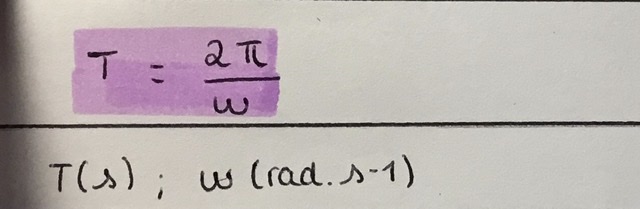 T = 2π/ω
T(s) ; ω (rad.s-1)